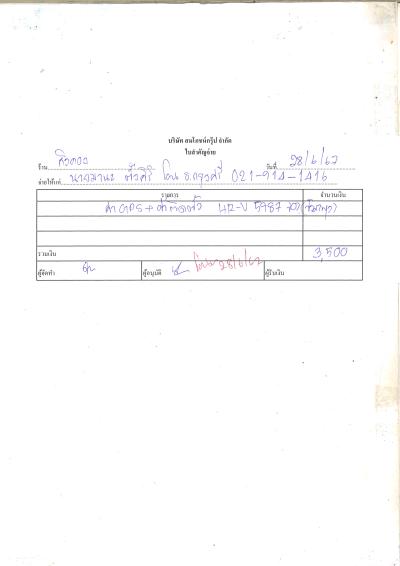 บริษัท สหโลชน่กรุ๊ป จำกัด
ใบสำคัญจ่าย
ร้าน วันที่ 28/6/62
จ่ายให้แก่ นายมานะ โอน ธ.กรุงศรี 021-914-1416
รายการ จำนวนเงิน
ค่า GPS + ค่าติดตั้ง 42-V 5987
รวมเงิน 3,500
ผู้จัดทำ ผู้อนุมัติ โอน 28/6/62 ผู้รับเงิน